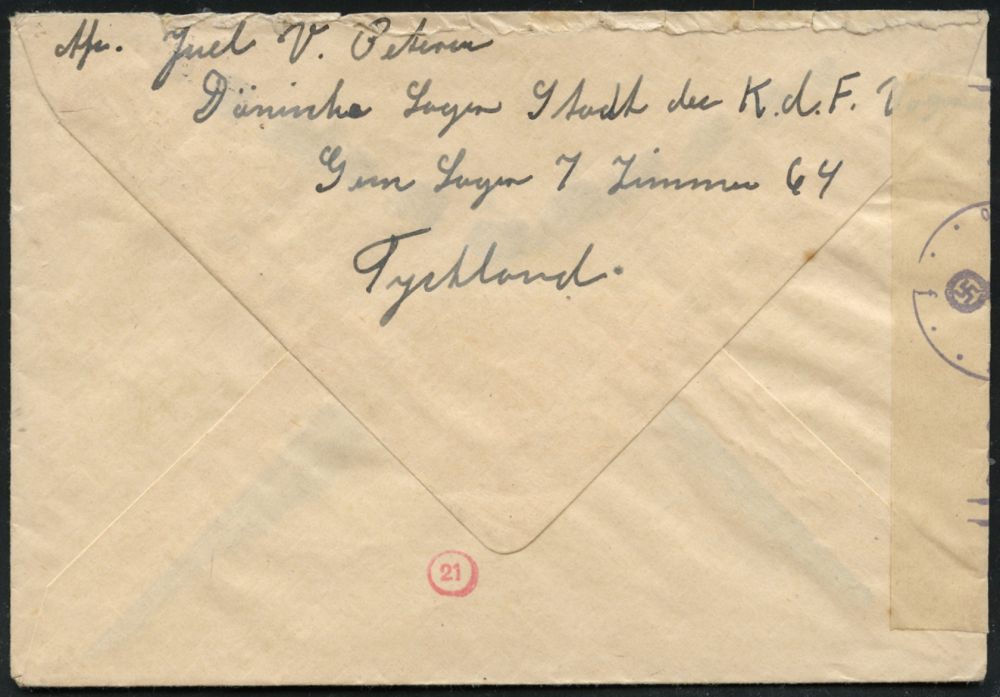 Afs. Juel V. Petersen
Dänische Lager Stadt der K.d.F. W
Gem Lager 7 Zimmer 64
Tyskland.
21
f